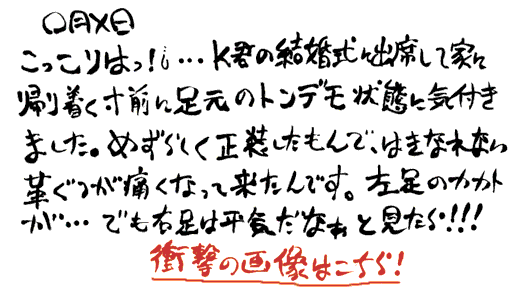 〇月×日
こっこりはっ!¡…K君の結婚式に出席して家に
帰着く寸前に足元のトンデモ状態に気付き
ました。めずらしく正装したもんで、はきなれない
革ぐつが痛くなって来たんです。左足のカカト
が…でも右足は平気だなぁと見たら!!!
衝撃の画像はこちら!